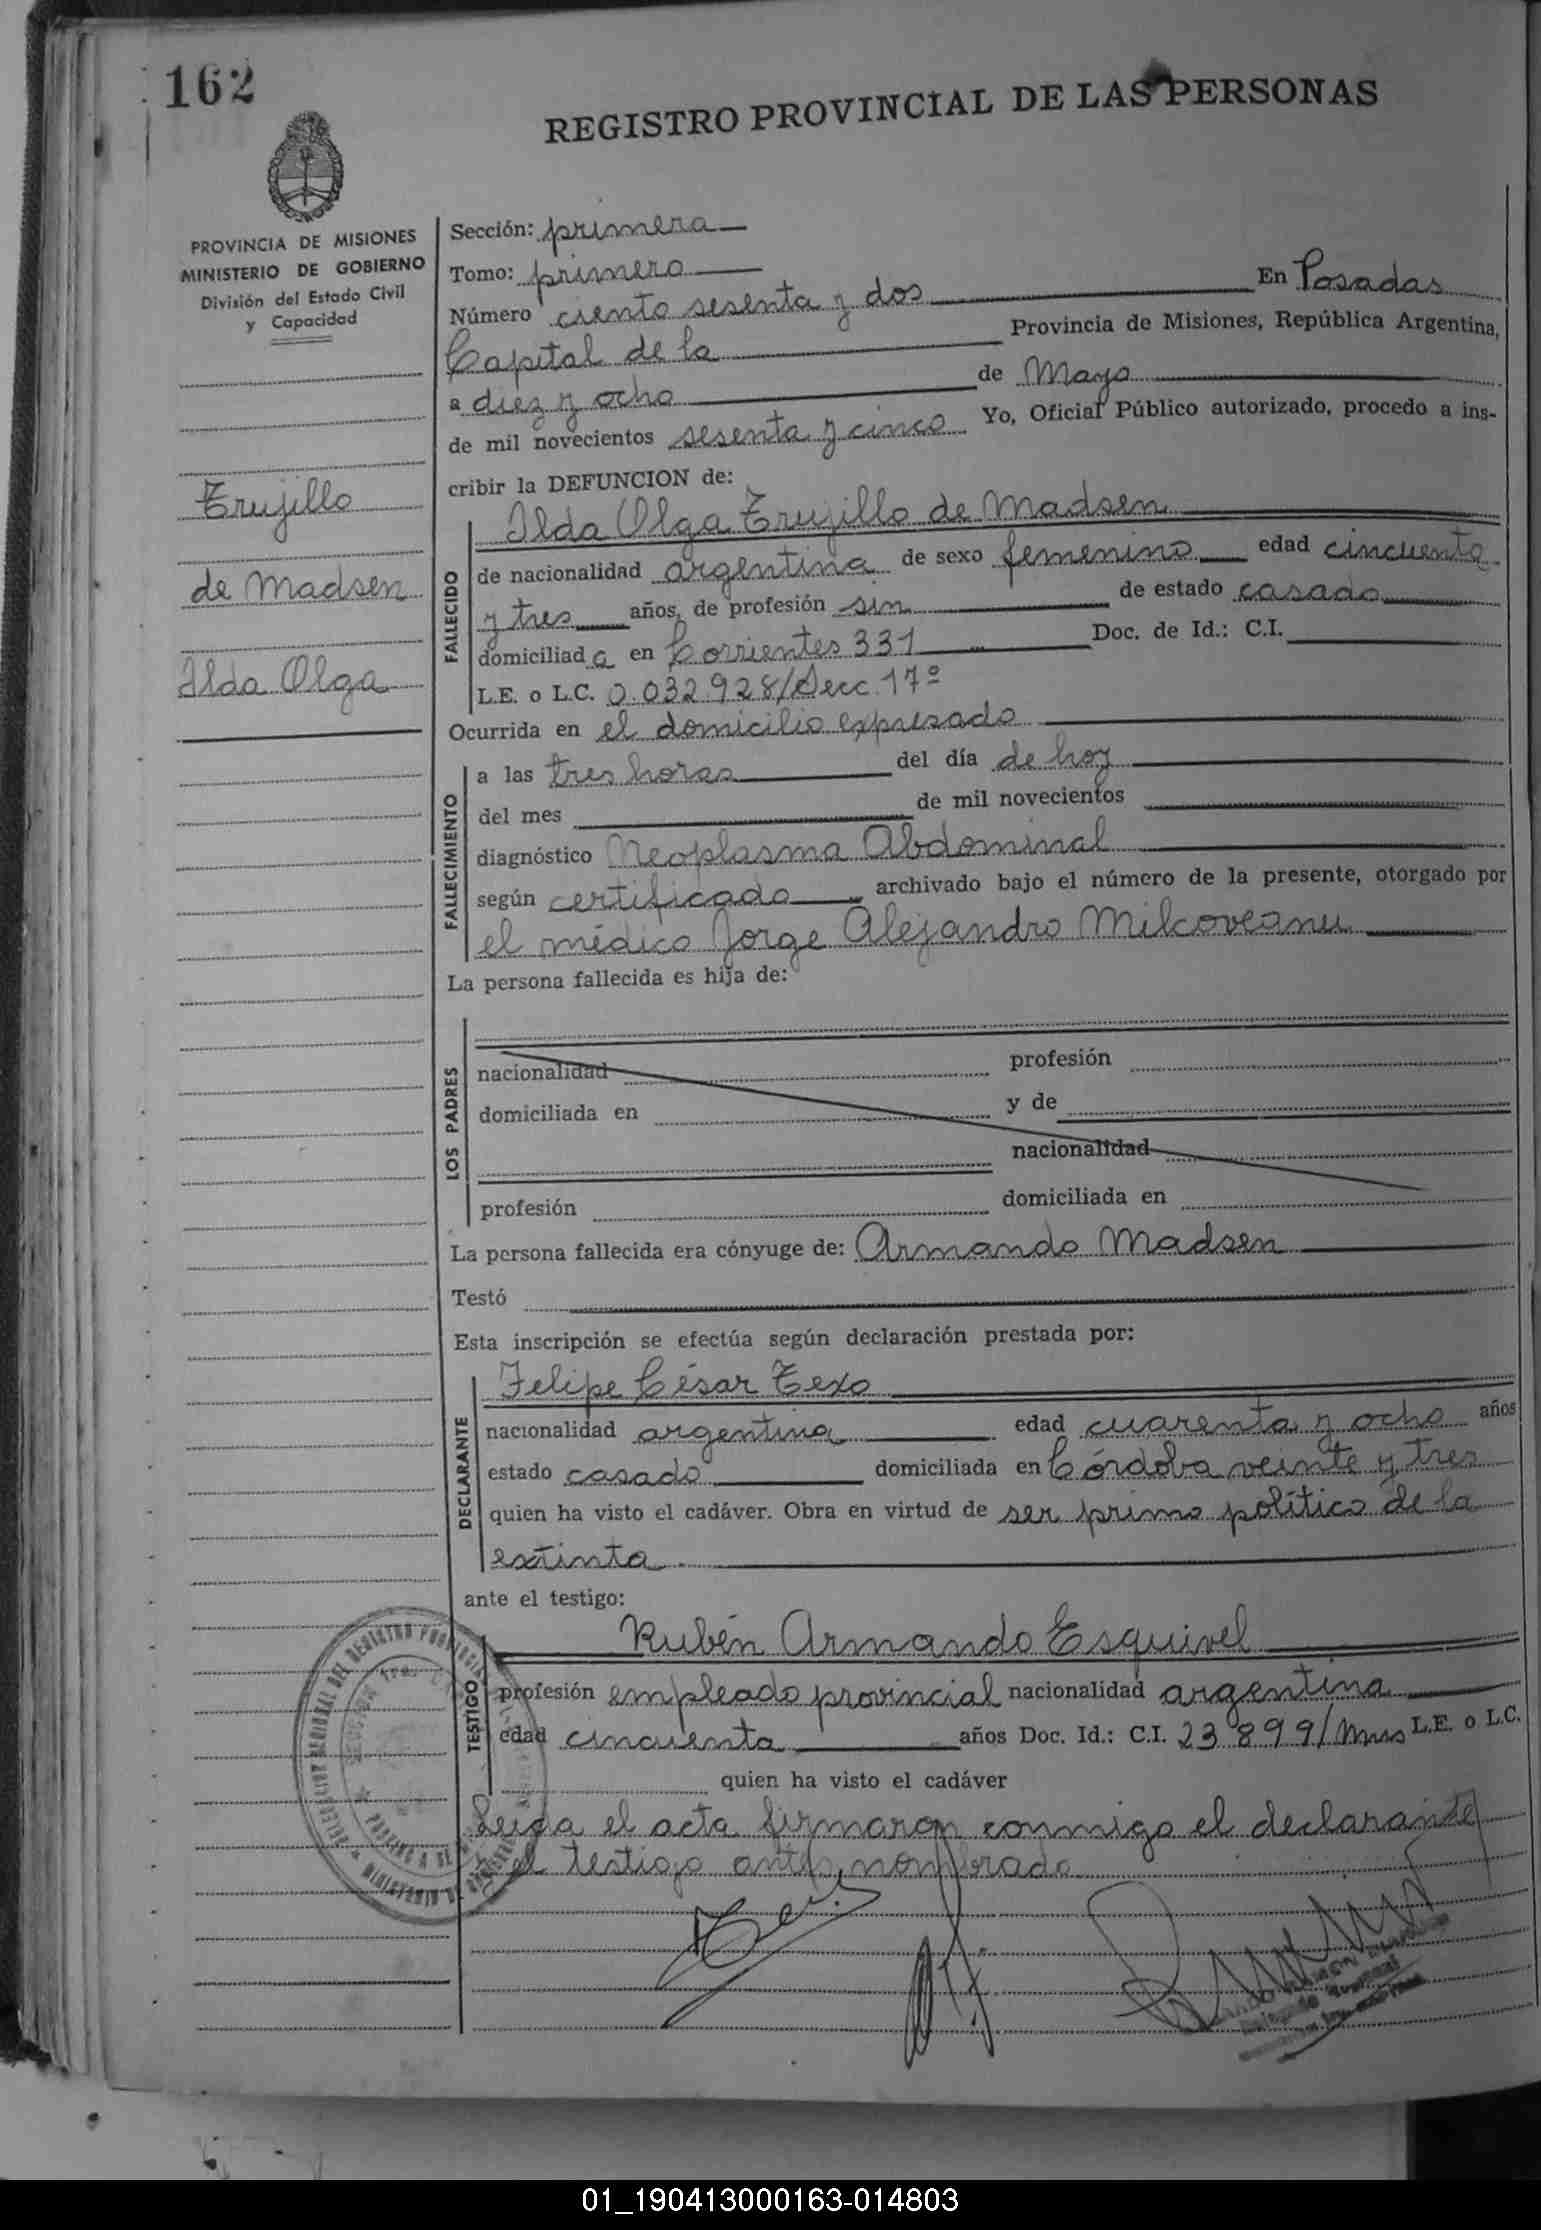 162
REGISTRO PROVINCIAL DE LAS PERSONAS
PROVINCIA DE MISIONES
MINISTERIO DE GOBIERNO
División del Estado Civil
y Capacidad
Trujillo
de Madsen
Ilda Olga
Sección: primera
Tomo: primero
Número ciento sesenta y dos En Posadas
Capital de la Provincia de Misiones, República Argentina,
a diez y ocho de Mayo
de mil novecientos sesenta y cinco Yo, Oficial Público autorizado, procedo a ins-
cribir la DEFUNCION de:
FALLECIDO
Ilda Olga Trujillo de Madsen
de nacionalidad argentina de sexo femenino edad cincuenta
y tres años, de profesión sin de estado casado
domiciliada en Corrientes 331 Doc. de Id.: C.I.
L.E. o L.C. 0.032.928/Secc. 17º
Ocurrida en el domicilio expresado
FALLECIMIENTO
a las tres horas del día de hoy
del mes de mil novecientos
diagnóstico Neoplasma Abdominal
según certificado archivado bajo el número de la presente, otorgado por
el médico Jorge Alejandro Milcoveanu
La persona fallecida es hija de:
LOS PADRES
nacionalidad profesión
domiciliada en y de
nacionalidad
profesión domiciliada en
La persona fallecida era cónyuge de: Armando Madsen
Testó
Esta inscripción se efectúa según declaración prestada por:
DECLARANTE
Felipe César Texo
nacionalidad argentina edad cuarenta y ocho años
estado casado domiciliada en Córdoba veinte y tres
quien ha visto el cadáver. Obra en virtud de ser primo político de la
extinta
ante el testigo:
TESTIGO
Rubén Armando Esquivel
profesión empleado provincial nacionalidad argentina
edad cincuenta años Doc. Id.: C.I. 23.899/Mns L.E. o L.C.
quien ha visto el cadáver
Leida el acta firmaron conmigo el declarante
y el testigo antes nombrado
01_190413000163-014803